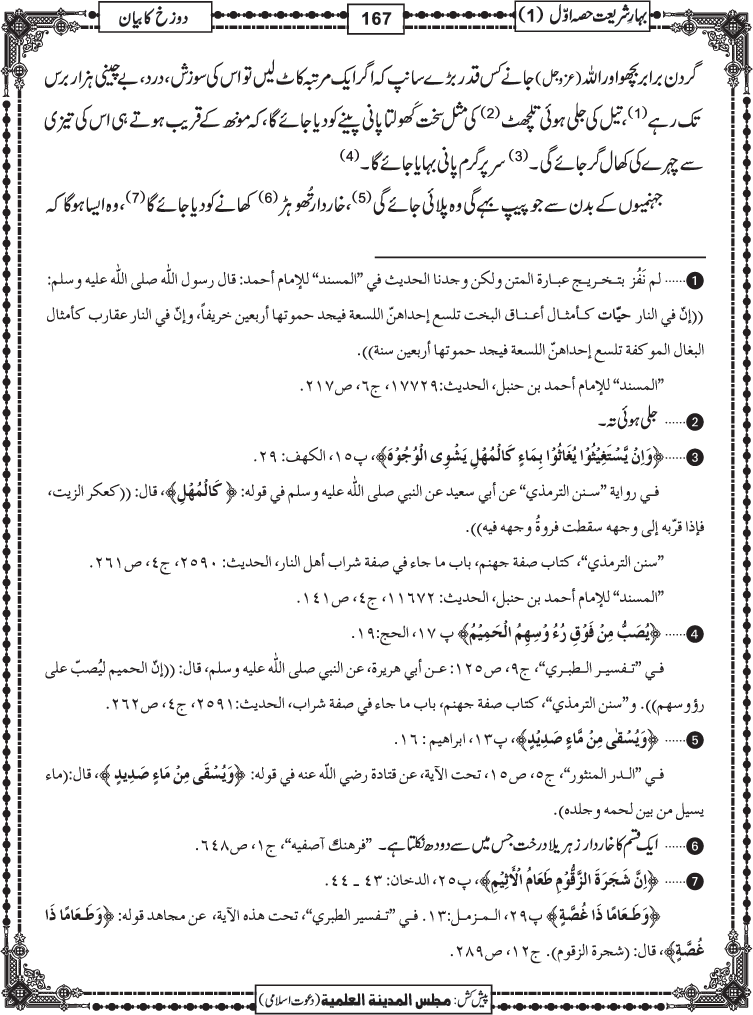 بہارِ شریعت حصہ اوّل (1)
167
دوزخ کا بیان
گردن برابر بچھو اور اللہ (عزوجل) جانے کس قدر بڑے سانپ کہ اگر ایک مرتبہ کاٹ لیں تو اس کی سوزش، درد، بے چینی ہزار برس
تک رہے (1)، تیل کی جلی ہوئی تلچھٹ (2) کی مثل سخت کَھولتا پانی پینے کو دیا جائے گا، کہ مونھ کے قریب ہوتے ہی اس کی تیزی
سے چہرے کی کھال گر جائے گی۔ (3) سر پر گرم پانی بہایا جائے گا۔ (4)
جہنمیوں کے بدن سے جو پیپ بہے گی وہ پلائی جائے گی (5)، خاردار تُھوہڑ (6) کھانے کو دیا جائے گا (7)، وہ ایسا ہو گا کہ
1 ...... لم نَفُز بتخريج عبارة المتن ولكن وجدنا الحديث في ”المسند“ للإمام أحمد: قال رسول اللّٰه صلى اللّٰه عليه وسلم:
((إنّ في النار حيّات كأمثال أعناق البخت تلسع إحداهنّ اللسعة فيجد حموتها أربعين خريفاً، وإنّ في النار عقارب كأمثال
البغال الموكفة تلسع إحداهنّ اللسعة فيجد حموتها أربعين سنة)).
”المسند“ للإمام أحمد بن حنبل، الحديث:١٧٧٢٩، ج٦، ص٢١٧.
2 ...... جلی ہوئی تہ۔
3 ...... ﴿وَاِنْ يَّسْتَغِيْثُوْا يُغَاثُوْا بِمَاءٍ كَالْمُهْلِ يَشْوِى الْوُجُوْهَ﴾، پ١٥، الكهف: ٢٩.
في رواية ”سنن الترمذي“ عن أبي سعيد عن النبي صلى اللّٰه عليه وسلم في قوله: ﴿ كَالْمُهْلِ﴾، قال: ((كعكر الزيت،
فإذا قرّبه إلى وجهه سقطت فروةُ وجهه فيه)).
”سنن الترمذي“، كتاب صفة جهنم، باب ما جاء في صفة شراب أهل النار، الحديث: ٢٥٩٠، ج٤، ص٢٦١.
”المسند“ للإمام أحمد بن حنبل، الحديث: ١١٦٧٢، ج٤، ص١٤١.
4 ...... ﴿يُصَبُّ مِنْ فَوْقِ رُءُوْسِهِمُ الْحَمِيْمُ﴾ پ ١٧، الحج:١٩.
في ”تفسير الطبري“، ج٩، ص١٢٥: عن أبي هريرة، عن النبي صلى اللّٰه عليه وسلم، قال: ((إنّ الحميم ليُصبّ على
رؤوسهم)). و”سنن الترمذي“، كتاب صفة جهنم، باب ما جاء في صفة شراب، الحديث:٢٥٩١، ج٤، ص٢٦٢.
5 ...... ﴿وَيُسْقٰى مِنْ مَّاءٍ صَدِيْدٍ﴾، پ١٣، ابراهيم : ١٦.
في ”الدر المنثور“، ج٥، ص١٥، تحت الآية، عن قتادة رضي اللّٰه عنه في قوله: ﴿وَيُسْقَى مِنْ مَاءٍ صَدِيدٍ ﴾، قال:(ماء
يسيل من بين لحمه وجلده).
6 ...... ایک قسم کا خاردار زہریلا درخت جس میں سے دودھ نکلتا ہے۔ ”فرهنگ آصفيه“، ج١، ص٦٤٨.
7 ...... ﴿اِنَّ شَجَرَةَ الزَّقُّوْمِ طَعَامُ الْاَثِيْمِ﴾، پ٢٥، الدخان: ٤٣ ـ ٤٤.
﴿وَطَعَامًا ذَا غُصَّةٍ﴾ پ٢٩، المزمل:١٣. في ”تفسير الطبري“، تحت هذه الآية، عن مجاهد قوله: ﴿وَطَعَامًا ذَا
غُصَّةٍ﴾، قال: (شجرة الزقوم). ج١٢، ص٢٨٩.
پیش کش: مجلس المدينة العلمية (دعوتِ اسلامی)